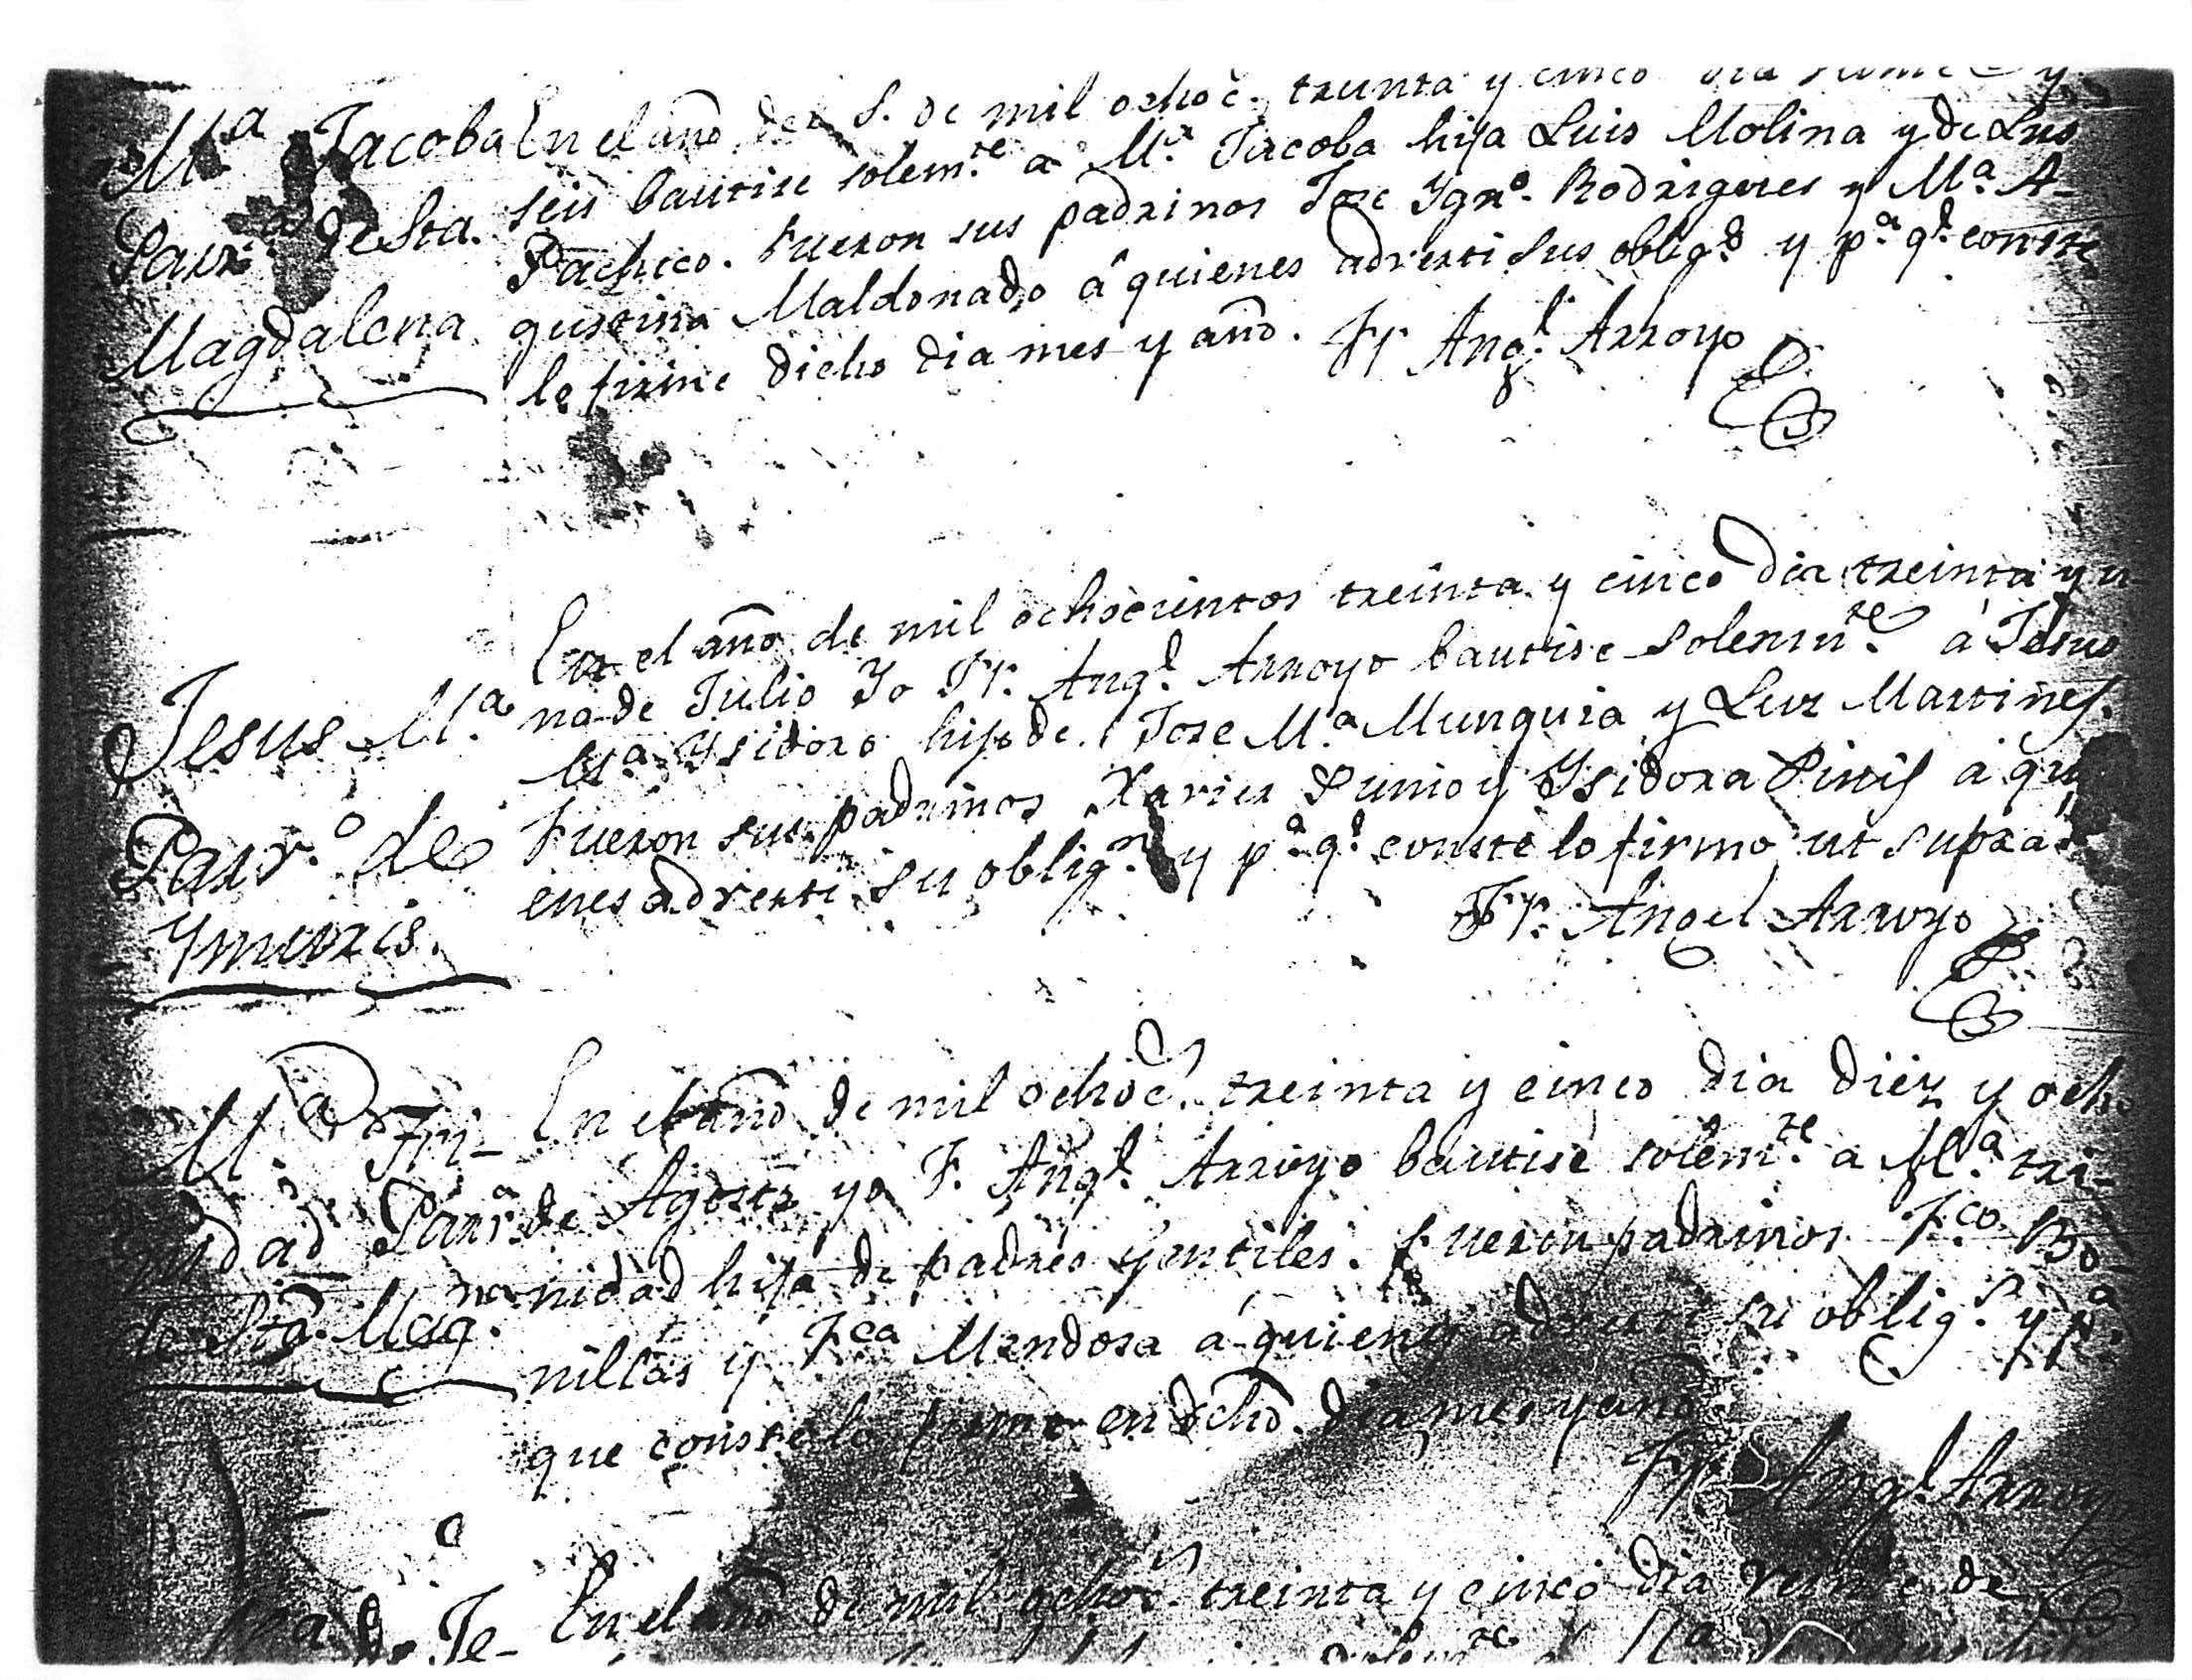 Mª Jacoba
Parrª de Sta.
Magdalena
En el año del S. de mil ochoc. treinta y cinco dia veinte y
seis bautise solemte a Mª Jacoba hija Luis Molina y de Lus
Pacheco. Fueron sus padrinos Jose Ygnº Rodrigeres y Mª A-
gustina Maldonado á quienes adverti sus obligs y pª qe conste
lo firme dicho dia mes y año. Fr Angl Arroyo
Jesus Mª
Parrº de
Ymuris.
En el año de mil ochocientos treinta y cinco dia treinta y u-
na de Julio Yo Fr. Angl Arroyo bautise solemnte á Jesus
Mª Ysidoro hijo de Jose Mª Munguia y Luz Martines.
Fueron sus padrinos Xavier y Ysidora á qui
enes adverti su oblign y pª qe conste lo firmo ut supra
Fr. Angel Arroyo
Mª Tri-
nidad Parrª
de Sta. Mag.
En el año de mil ochocs treinta y cinco dia diez y ocho
de Agosto yo F. Angl Arroyo bautise solemte a Mª tri-
nidad hija de padres Gentiles. Fueron padrinos Fco Bo-
nillas y Fca Mendosa á quienes adverti su obligs y pª
que conste lo firmo en dcho. dia mes y año
Fr. Angl Arroyo
de Je-
En el año de mil ochocs treinta y cinco dia veinte de